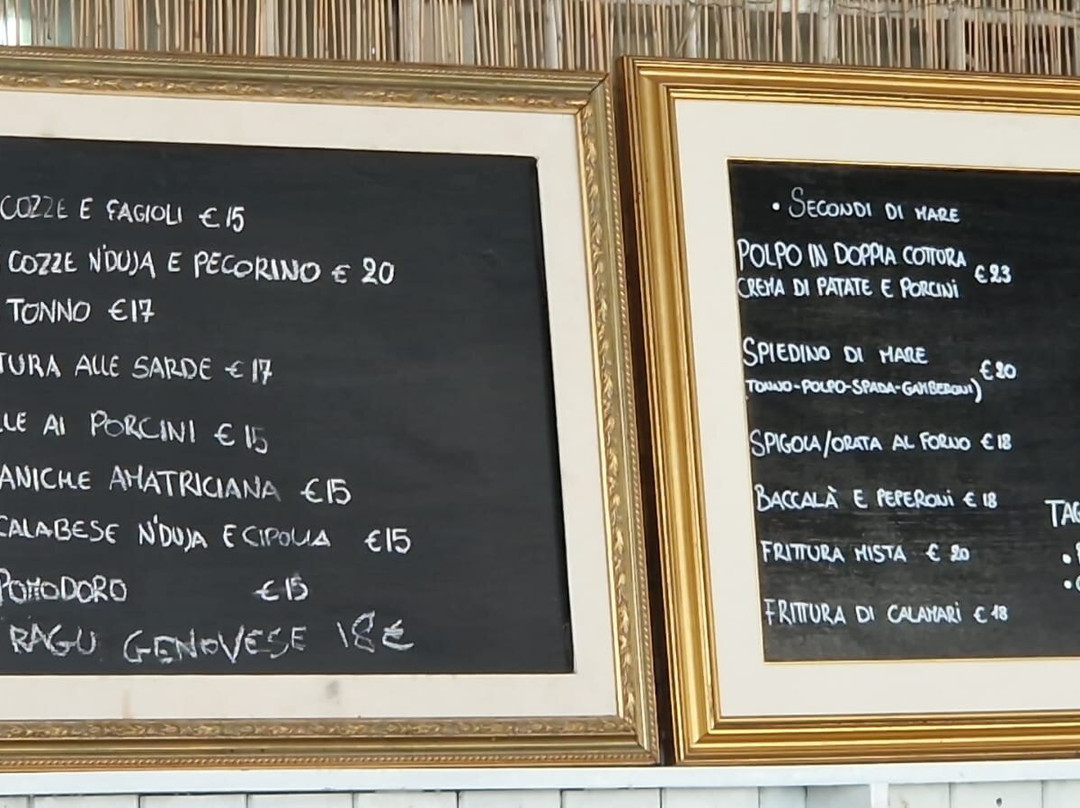 COZZE E FAGIOLI € 15
COZZE N'DUJA E PECORINO € 20
TONNO €17
TURA ALLE SARDE € 17
LLE AI PORCINI € 15
ANICHE AMATRICIANA €15
CALABESE N'DUJA E CIPOLLA €15
POMODORO €15
RAGU GENOVESE 18€
• SECONDI DI MARE
POLPO IN DOPPIA COTTURA
CREMA DI PATATE E PORCINI €23
SPIEDINO DI MARE €20
TONNO-POLPO-SPADA-GAMBERONI)
SPIGOLA/ORATA AL FORNO €18
BACCALÀ E PEPERONI € 18
FRITTURA MISTA € 20
FRITTURA DI CALAMARI € 18
TAG